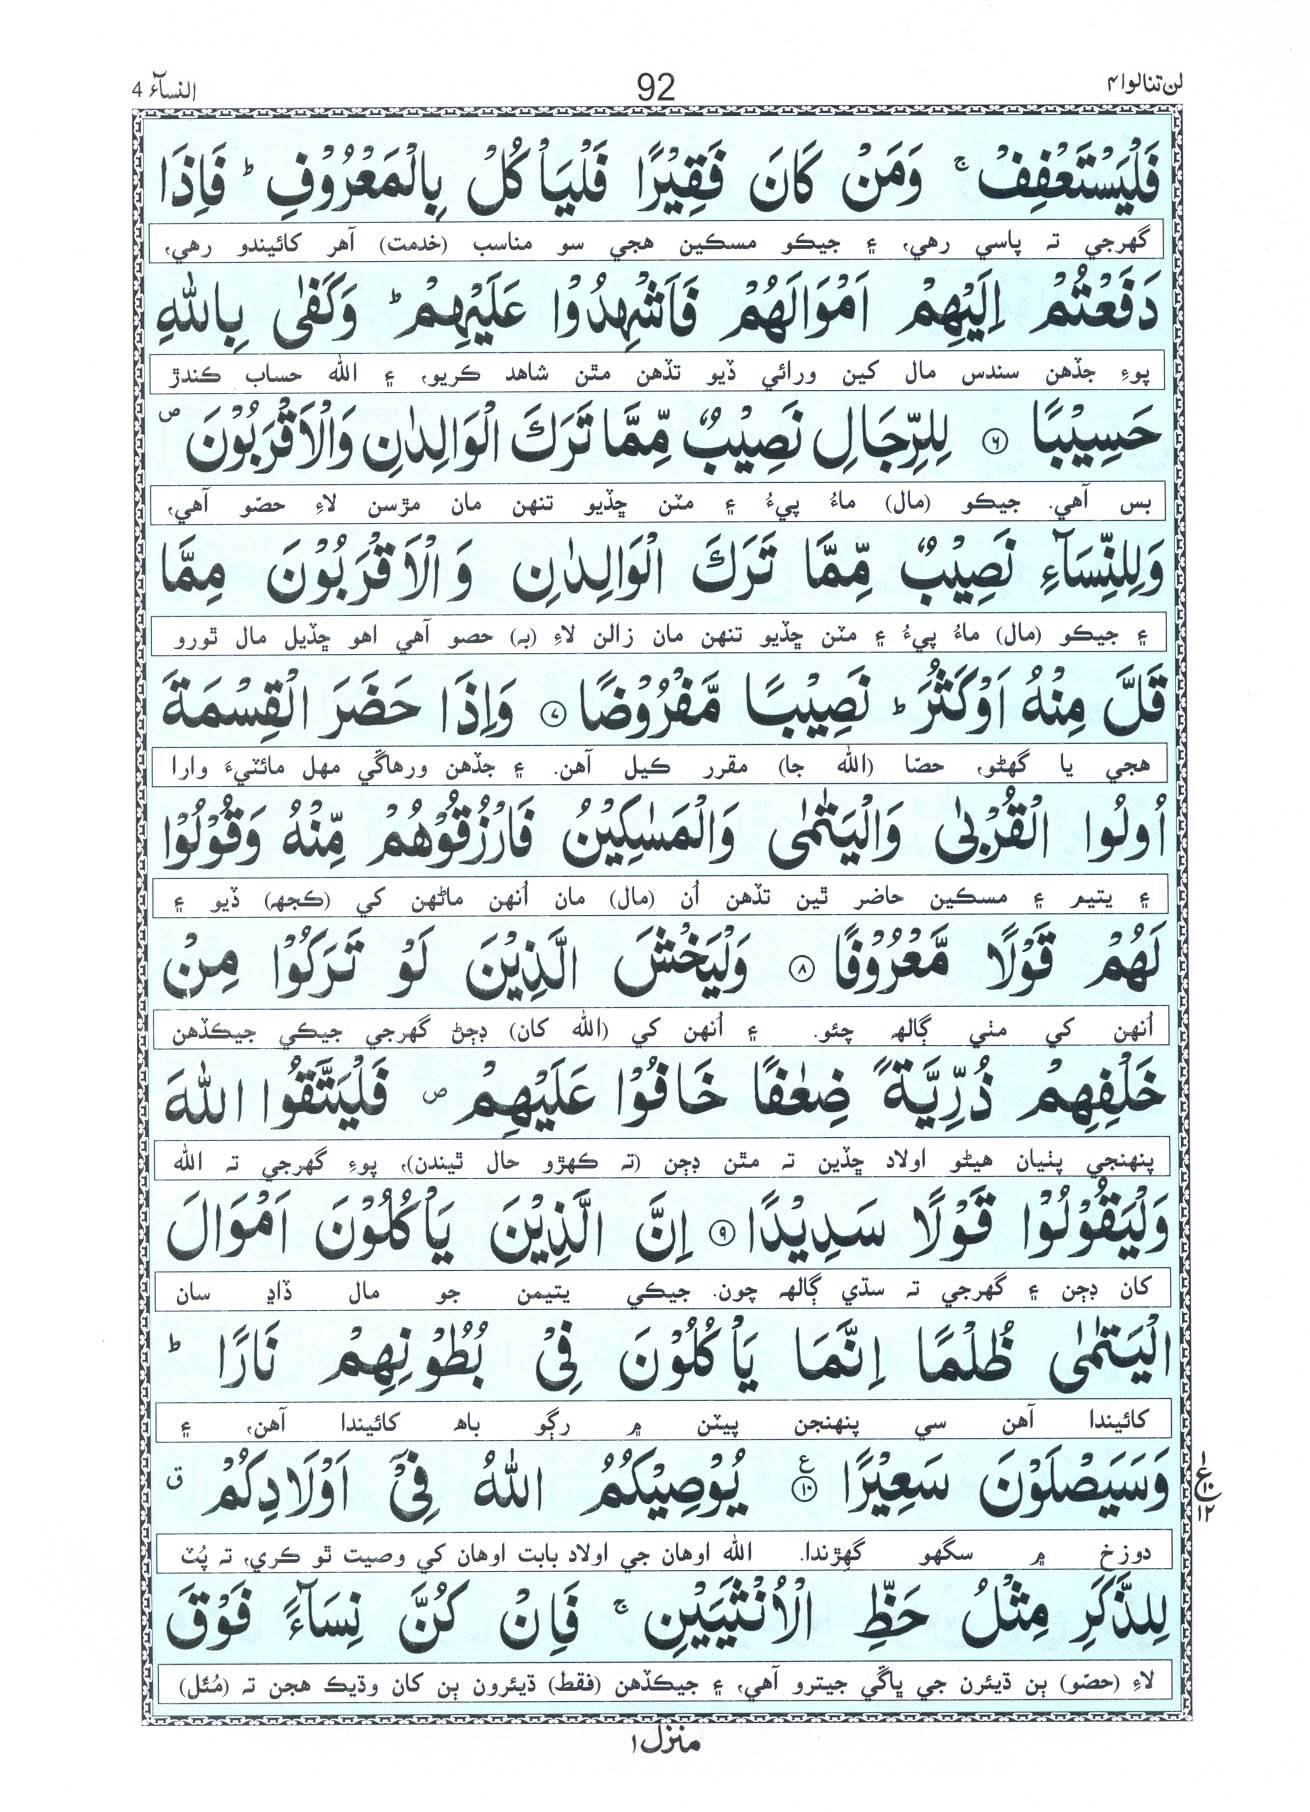 لن تنالوا ۴
92
النسآء 4
فَلْيَسْتَعْفِفْ ۚ وَمَنْ كَانَ فَقِيْرًا فَلْيَاْكُلْ بِالْمَعْرُوْفِ ؕ فَاِذَا
گهرجي ته پاسي رهي، ۽ جيڪو مسڪين هجي سو مناسب (خدمت) آهر کائيندو رهي،
دَفَعْتُمْ اِلَيْهِمْ اَمْوَالَهُمْ فَاَشْهِدُوْا عَلَيْهِمْ ؕ وَكَفٰى بِاللّٰهِ
پوءِ جڏهن سندس مال کين ورائي ڏيو تڏهن مٿن شاهد ڪريو، ۽ الله حساب ڪندڙ
حَسِيْبًا ۶ لِلرِّجَالِ نَصِيْبٌ مِّمَّا تَرَكَ الْوَالِدٰنِ وَالْاَقْرَبُوْنَ ص
بس آهي. جيڪو (مال) ماءُ پيءُ ۽ مٽن ڇڏيو تنهن مان مڙسن لاءِ حصّو آهي،
وَلِلنِّسَآءِ نَصِيْبٌ مِّمَّا تَرَكَ الْوَالِدٰنِ وَالْاَقْرَبُوْنَ مِمَّا
۽ جيڪو (مال) ماءُ پيءُ ۽ مٽن ڇڏيو تنهن مان زالن لاءِ (به) حصو آهي اهو ڇڏيل مال ٿورو
قَلَّ مِنْهُ اَوْ كَثُرَ ؕ نَصِيْبًا مَّفْرُوْضًا ۷ وَاِذَا حَضَرَ الْقِسْمَةَ
هجي يا گهڻو، حصّا (الله جا) مقرر ڪيل آهن. ۽ جڏهن ورهاڱي مهل مائٽيءَ وارا
اُولُوا الْقُرْبٰى وَالْيَتٰمٰى وَالْمَسٰكِيْنُ فَارْزُقُوْهُمْ مِّنْهُ وَقُوْلُوْا
۽ يتيم ۽ مسڪين حاضر ٿين تڏهن اُن (مال) مان اُنهن ماڻهن کي (ڪجهه) ڏيو ۽
لَهُمْ قَوْلًا مَّعْرُوْفًا ۸ وَلْيَخْشَ الَّذِيْنَ لَوْ تَرَكُوْا مِنْ
اُنهن کي مٺي ڳالهه چئو. ۽ اُنهن کي (الله کان) ڊڄڻ گهرجي جيڪي جيڪڏهن
خَلْفِهِمْ ذُرِّيَّةً ضِعٰفًا خَافُوْا عَلَيْهِمْ ص فَلْيَتَّقُوا اللّٰهَ
پنهنجي پٺيان هيڻو اولاد ڇڏين ته مٿن ڊڄن (ته ڪهڙو حال ٿيندن)، پوءِ گهرجي ته الله
وَلْيَقُوْلُوْا قَوْلًا سَدِيْدًا ۹ اِنَّ الَّذِيْنَ يَاْكُلُوْنَ اَمْوَالَ
کان ڊڄن ۽ گهرجي ته سڌي ڳالهه چون. جيڪي يتيمن جو مال ڏاڍ سان
الْيَتٰمٰى ظُلْمًا اِنَّمَا يَاْكُلُوْنَ فِيْ بُطُوْنِهِمْ نَارًا ؕ
کائيندا آهن سي پنهنجن پيٽن ۾ رڳو باھ کائيندا آهن، ۽
وَسَيَصْلَوْنَ سَعِيْرًا ۱۰ ع يُوْصِيْكُمُ اللّٰهُ فِيْٓ اَوْلَادِكُمْ ق
ع ۱ ۱۰ ۱۲
دوزخ ۾ سگهو گهڙندا. الله اوهان جي اولاد بابت اوهان کي وصيت ٿو ڪري، ته پُٽ
لِلذَّكَرِ مِثْلُ حَظِّ الْاُنْثَيَيْنِ ۚ فَاِنْ كُنَّ نِسَآءً فَوْقَ
لاءِ (حصّو) ٻن ڌيئرن جي ڀاڱي جيترو آهي، ۽ جيڪڏهن (فقط) ڌيئرون ٻن کان وڌيڪ هجن ته (مُئل)
منزل ۱